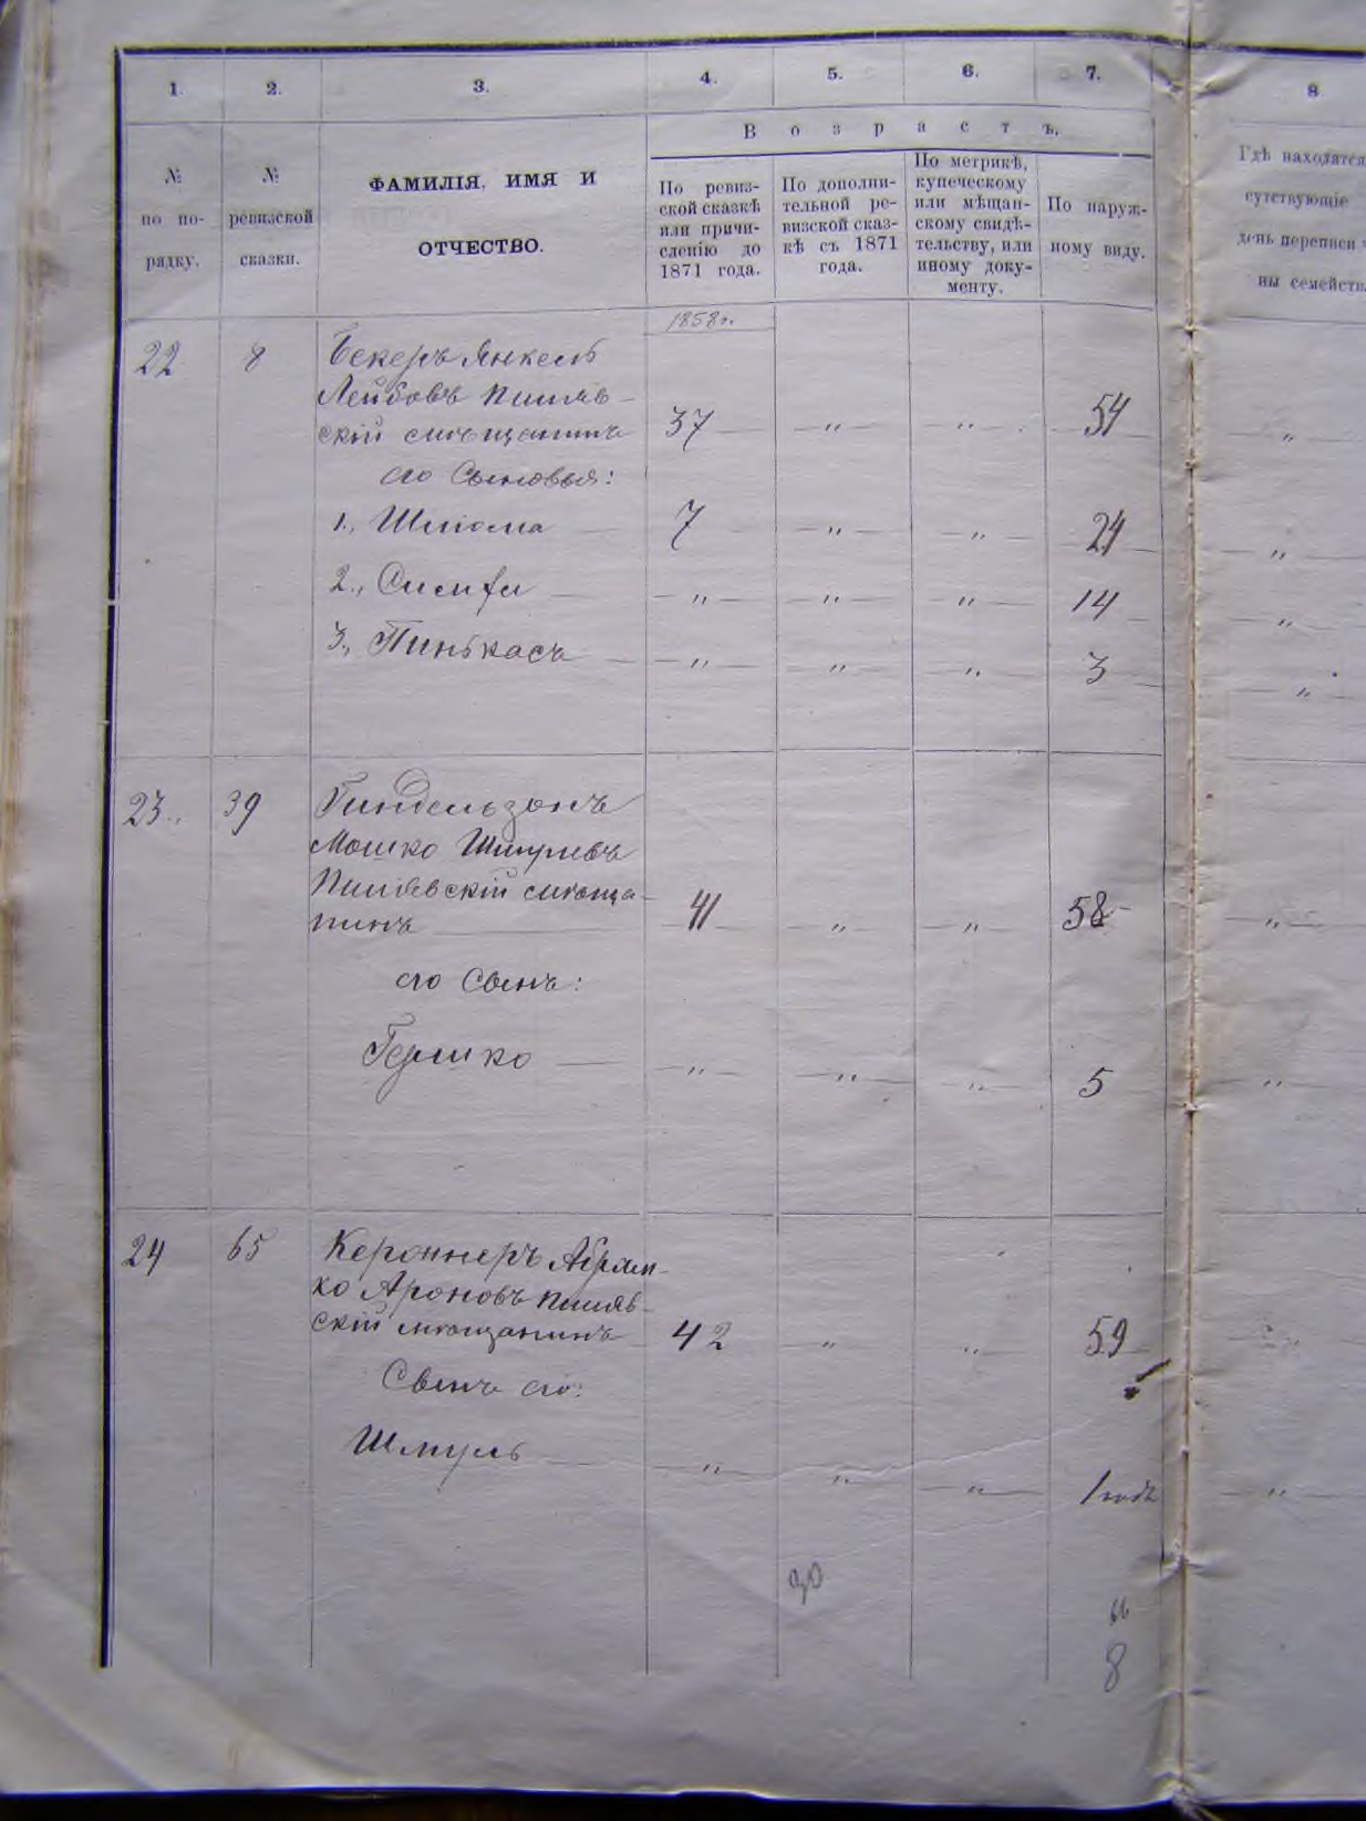 1. 2. 3. 4. 5. 6. 7. 8
Возрастъ.
№ по по-рядку.
№ ревизской сказки.
ФАМИЛІЯ, ИМЯ И
ОТЧЕСТВО.
По ревиз-
ской сказкѣ
или причи-
сленію до
1871 года.
По дополни-
тельной ре-
визской сказ-
кѣ съ 1871
года.
По метрикѣ,
купеческому
или мѣщан-
скому свидѣ-
тельству, или
иному доку-
менту.
По наруж-
ному виду.
Гдѣ находятся
сутствующіе
день переписи
ны семейств
1858 г.
22 8 Бекеръ Янкель
Лейбовъ Пиляв-
скій мѣщанинъ 37 — „ — — „ — 54 „
его Сыновья:
1., Шлиома — 7 — „ — — „ — 24 — „ —
2., — — „ — — „ — — „ — 14 — „ —
3., Пинькасъ — — „ — — „ — — „ — 3 — „ —
23., 39 Гиндельзонъ
Мошко
Пилявскій мѣща-
нинъ — 41 — „ — — „ — 58 — „ —
его Сынъ:
Гершко — — „ — — „ — — „ — 5 „
24 65 Керопнеръ Абрам-
ко Ароновъ Пиляв-
скій мѣщанинъ 42 — „ — — „ — 59
Сынъ его:
Шмуль — — „ — — „ — — „ — 1 годъ — „ —
30
8